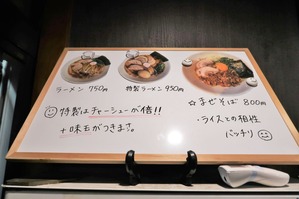 ラーメン 750円
特製ラーメン 950円
☆まぜそば 800円
・ライスとの相性
バッチリ
特製はチャーシューが倍!!
+味玉がつきます。